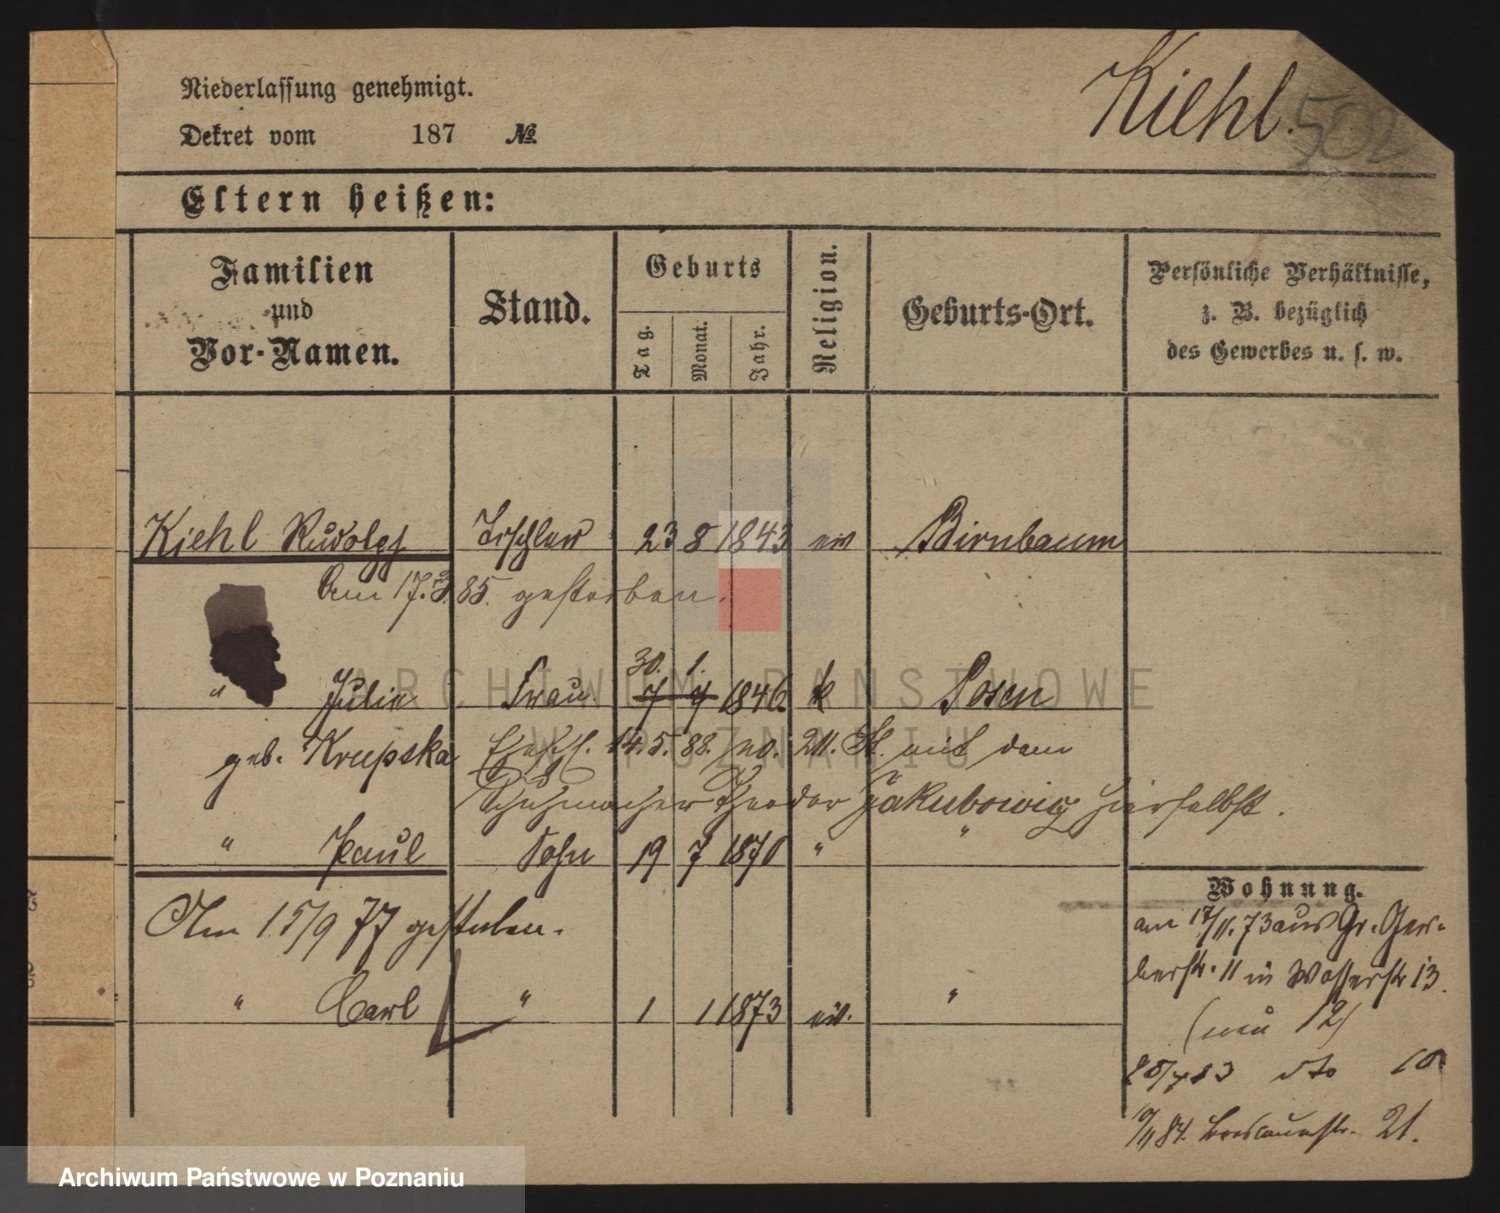 Niederlassung genehmigt.
Kiehl. 502
Dekret vom 187 №
Eltern heißen:
Familien und Vor-Namen.
Stand.
Geburts
Tag. Monat. Jahr.
Religion.
Geburts-Ort.
Persönliche Verhältnisse, z. B. bezüglich des Gewerbes u. s. w.
Kiehl Rudolph Tischler 23 8 1843 ev Birnbaum
Am 17.3.85. gestorben.
" Julie Frau 30. 1.
7 4 1846. k Posen
geb. Krupska Ehesch. 14.5.88. No. 211. St. mit dem
Schuhmacher Theodor Jakubowicz hierselbst.
" Paul Sohn 19 7 1870 " "
Am 15/9 77 gestorben.
" Carl " 1 1 1873 ev. "
Wohnung.
am 17/11. 73 aus Gr. Ger-
berstr. 11 in Wasserstr 13.
(neu 12)
dto 10
84. Breslauerstr. 21.
ARCHIWUM PAŃSTWOWE
W POZNANIU
Archiwum Państwowe w Poznaniu